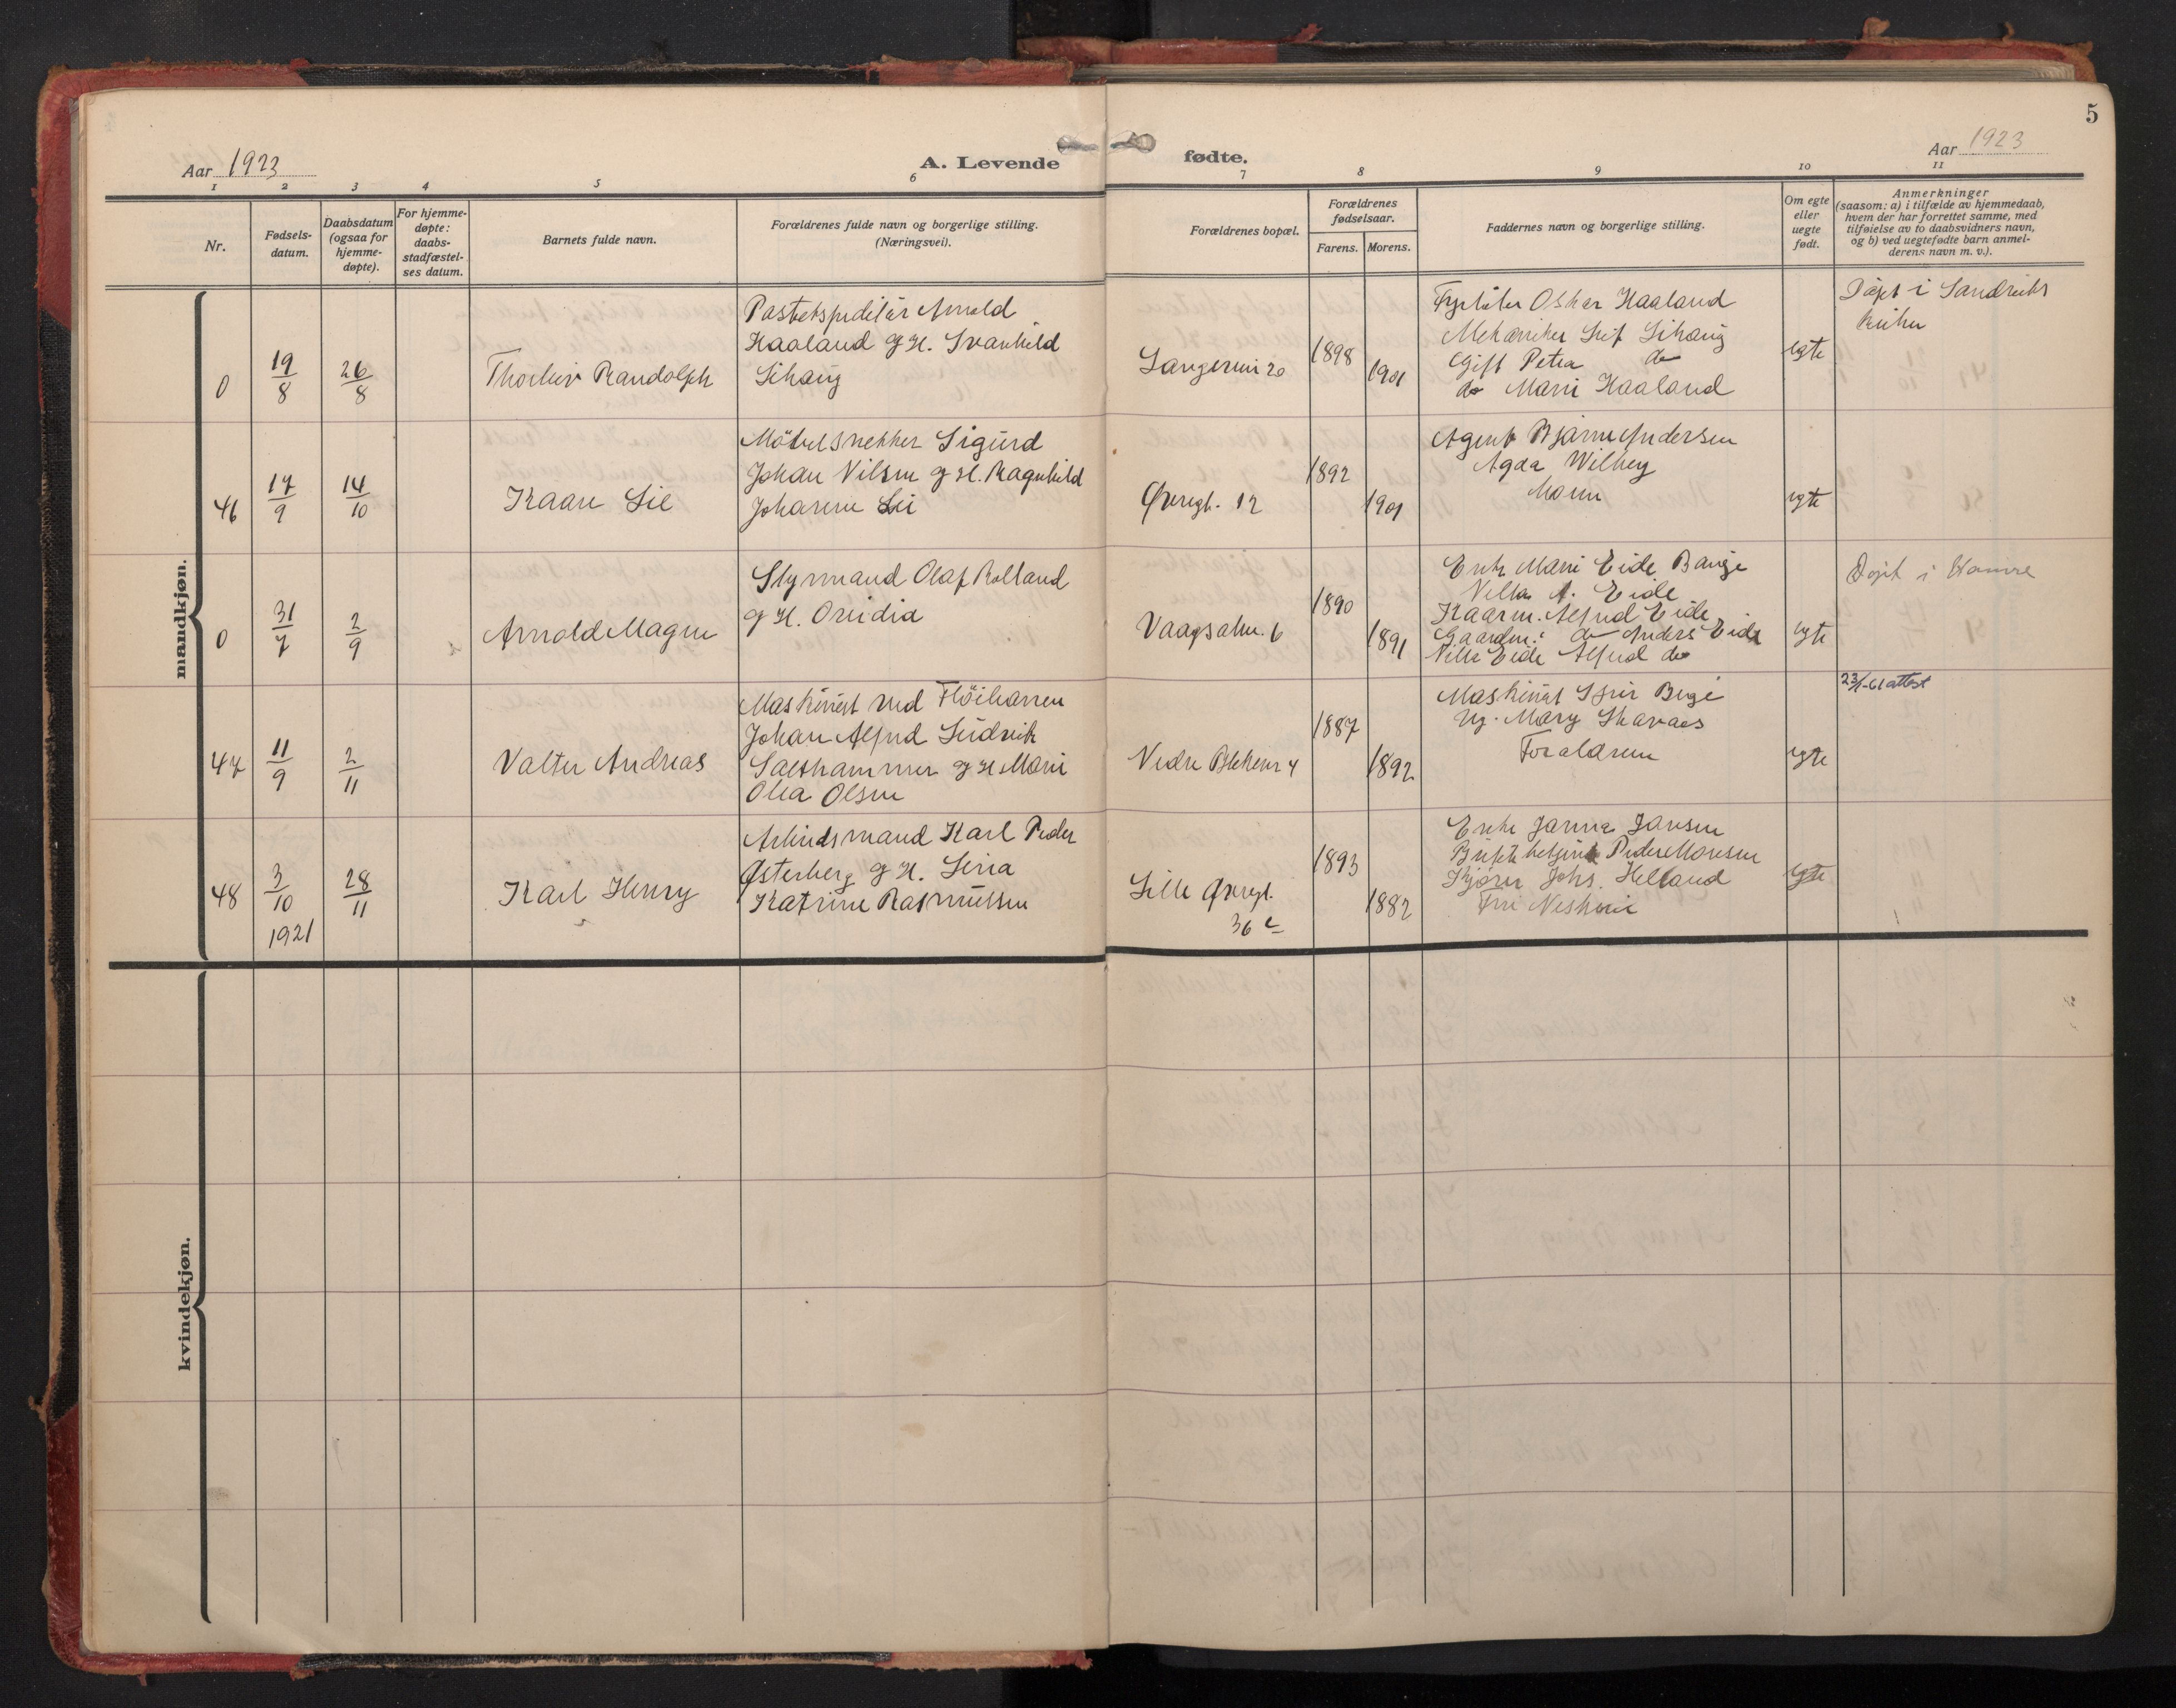 5
Aar 1923
A. Levende fødte.
Aar 1923
1 2 3 4 5 6 7 8 9 10 11
Nr.
Fødsels-
datum.
Daabsdatum
(ogsaa for
hjemme-
døpte).
For hjemme-
døpte:
daabs-
stadfæstel-
ses datum.
Barnets fulde navn.
Forældrenes fulde navn og borgerlige stilling.
(Næringsvei).
Forældrenes bopæl.
Forældrenes
fødselsaar.
Farens. Morens.
Faddernes navn og borgerlige stilling.
Om egte
eller
uegte
født.
Anmerkninger
(saasom: a) i tilfælde av hjemmedaab,
hvem der har forrettet samme, med
tilføielse av to daabsvidners navn,
og b) ved uegtefødte barn anmel-
derens navn m. v.).
mandkjøn.
0
19/8
26/8
Randolph
Arnold
Haaland g H. Svanhild
20
1898
1901
Oskar Haaland
Mekaniker
Gift Petra do
do Marie Haaland
egte
Døpt i
46
17/9
14/10
Kaare Lie
Møbelsnekker Sigurd
Johan Nilsen g H. Ragnhild
Johanne Lie
Øvregt. 12
1892
1901
Agent Bjarne Andersen
Agda
Moren
egte
0
31/7
2/9
Arnold Magne
Styrmand Olaf Rolland
g H. Ovidia
6
1890
1891
Enke Marie Eide
A. Eide
Alfred Eide
do Anders Eide
Eide Alfred do
egte
Døpt i Hamre
47
11/9
2/11
Valter Andreas
Maskinist ved Fløibanen
Johan Alfred Ludvik
g H Marie
Olea Olsen
Nedre Blekevn 4
1887
1892
Maskinist
Ug. Mary Skavaas
Forældrene
egte
23/1-61 attest
48
3/10
1921
28/11
Karl Henry
Arbeidsmand Karl Peder
Østerberg g H. Lina
Katrine Rasmussen
Lille Øvregt.
36 c
1893
1882
Enke Janna Jansen
Johs. Helland
egte
kvindekjøn.